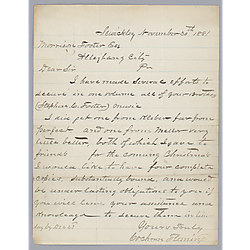 Sewickley November 20th 1881
Morrison Foster Esq
Allegheny City
Pa
Dear Sir
I have made several efforts to
secure in one volume all of your Brothers
(Stephen C. Foster) music
I did get one from Kleber far from
perfect and one from Mellor very
little better, both of which I gave to
friends for the coming Christmas
I would like to have four complete
copies, substantially bound, and would
be under lasting obligations to you if
you will lend your assistance and
knowledge to secure them in
day by Dec 25th
Yours truly
Cochran Fleming